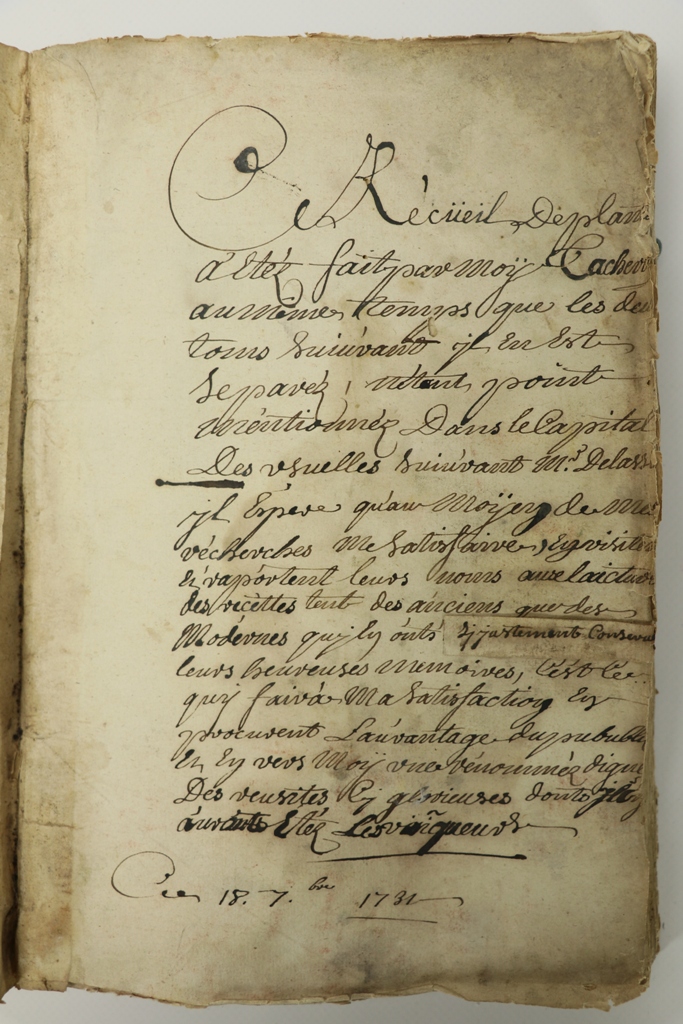 Ce Récüeil Deplan
a'Etéz fait par Moÿ Cacherv
au même temps que les deu
toms suiuvant jl En Est
Separéz, n'étant point
méntionnéz Dans le Capital
Des vsuelles suiuvant Mr. Delass
jl Espere qu'au Moÿen de mes
récherches Me Satisfaire, Ey visit
En raportent leurs noms auec laictur
des récéttes tent des anciens que des
Modérnes quj Ey onts sj justement Conserv
leurs heureuses Memoires, C'ést Ce
quj faira Ma Satisfaction Ey
procurent L'auvantage du pubublic
Et Ey vers Moÿ vne rénomméz digne
Des reusites sj glorieuses donts jls
auronts Etéz Les vainqueurs
Ce 18. 7.bre 1731